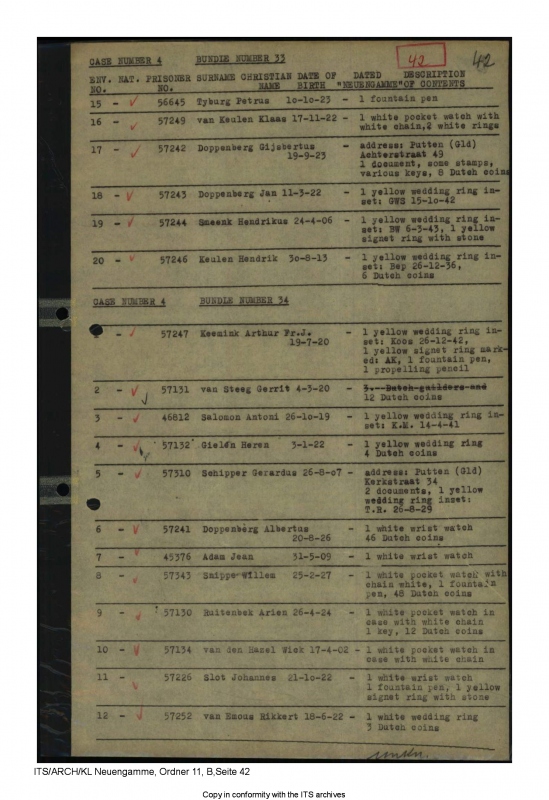 42 42
CASE NUMBER 4 BUNDLE NUMBER 33
ENV. NAT. PRISONER SURNAME CHRISTIAN DATE OF DATED DESCRIPTION
NO. NO. NAME BIRTH "NEUENGAMME" OF CONTENTS
15 - 56645 Tyburg Petrus 10-10-23 - 1 fountain pen
16 - 57249 van Keulen Klaas 17-11-22 - 1 white pocket watch with
white chain, 2 white rings
17 - 57242 Doppenberg Gijsbertus - address: Putten (Gld)
19-9-23 Achterstraat 49
1 document, some stamps,
various keys, 8 Dutch coins
18 - 57243 Doppenberg Jan 11-3-22 - 1 yellow wedding ring in-
set: GWS 15-10-42
19 - 57244 Smeenk Hendrikus 24-4-06 - 1 yellow wedding ring in-
set: BW 6-3-43, 1 yellow
signet ring with stone
20 - 57246 Keulen Hendrik 30-8-13 - 1 yellow wedding ring in-
set: Bep 26-12-36,
6 Dutch coins
CASE NUMBER 4 BUNDLE NUMBER 34
- 57247 Keemink Arthur Fr.J. - 1 yellow wedding ring in-
19-7-20 set: Koos 26-12-42,
1 yellow signet ring mark-
ed: AK, 1 fountain pen,
1 propelling pencil
2 - 57131 van Steeg Gerrit 4-3-20 - 3.- Dutch guilders and
12 Dutch coins
3 - 46812 Salomon Antoni 26-10-19 - 1 yellow wedding ring in-
set: K.M. 14-4-41
4 - 57132 Gielen Heren 3-1-22 - 1 yellow wedding ring
4 Dutch coins
5 - 57310 Schipper Gerardus 26-8-07 - address: Putten (Gld)
Kerkstraat 34
2 documents, 1 yellow
wedding ring inset:
T.R. 26-8-29
6 - 57241 Doppenberg Albertus - 1 white wrist watch
20-8-26 46 Dutch coins
7 - 45376 Adam Jean 31-5-09 - 1 white wrist watch
8 - 57343 Snippe Willem 25-2-27 - 1 white pocket watch with
chain white, 1 fountain
pen, 48 Dutch coins
9 - 57130 Ruitenbek Arien 26-4-24 - 1 white pocket watch in
case with white chain
1 key, 12 Dutch coins
10 - 57134 van den Hazel Wick 17-4-02 - 1 white pocket watch in
case with white chain
11 - 57226 Slot Johannes 21-10-22 - 1 white wrist watch
1 fountain pen, 1 yellow
signet ring with stone
12 - 57252 van Emous Rikkert 18-6-22 - 1 white wedding ring
3 Dutch coins
ITS/ARCH/KL Neuengamme, Ordner 11, B,Seite 42
Copy in conformity with the ITS archives